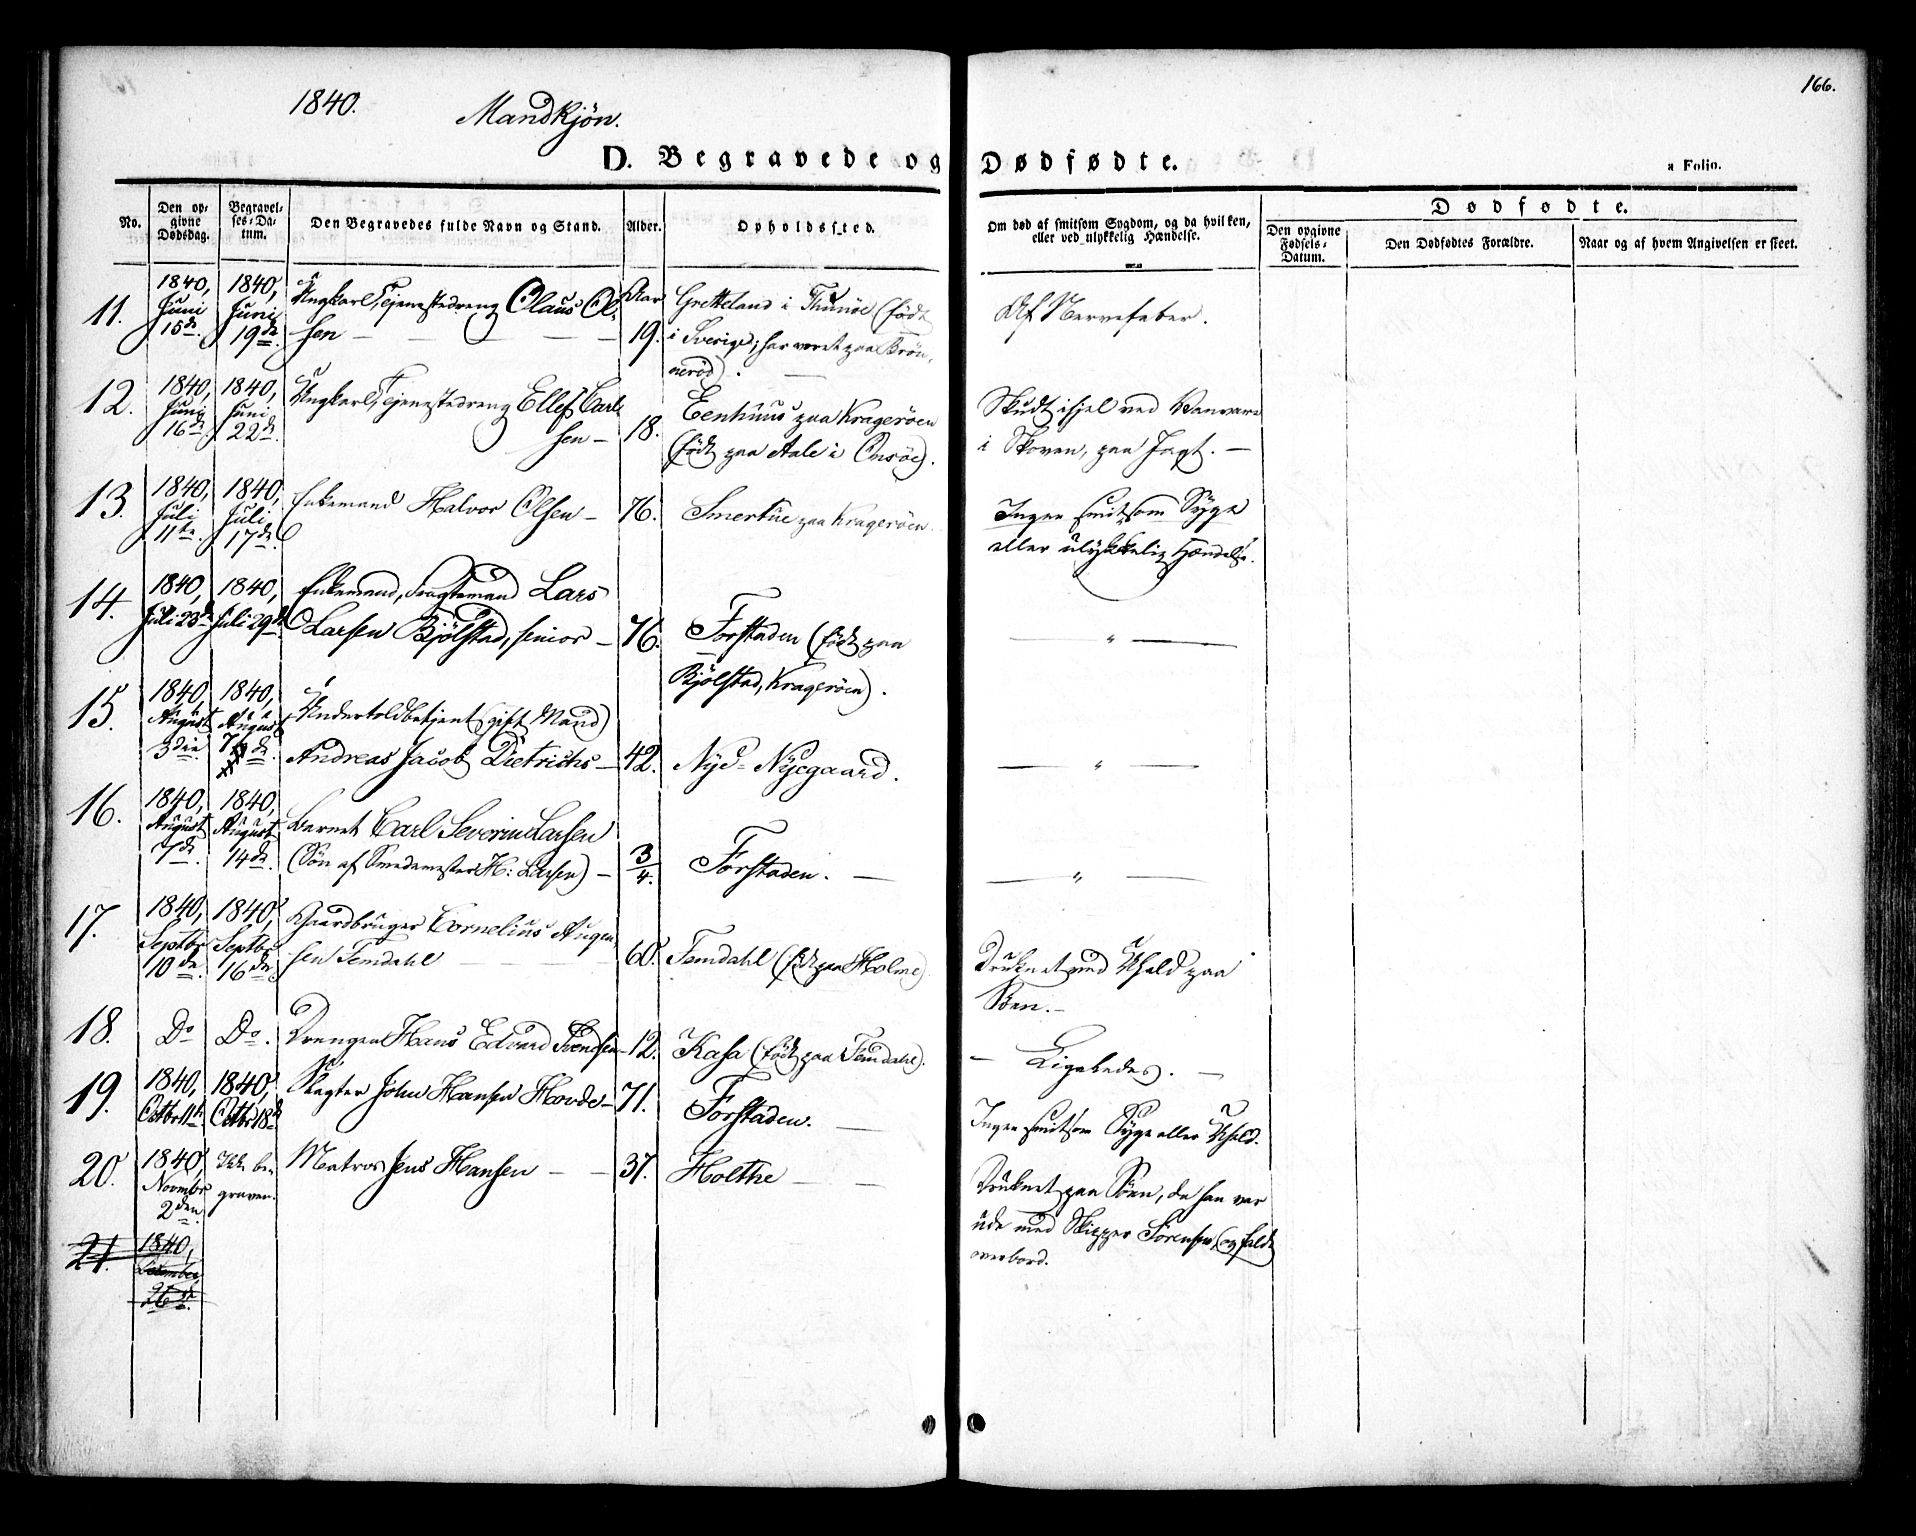 166.
1840. Mandkjön.
D. Begravede og Dødfødte.
a Folio.
No.
Den op-
givne
Dødsdag.
Begravel-
ses-Da-
tum.
Den Begravedes fulde Navn og Stand.
Alder.
Opholdssted.
Om død af smitsom Sygdom, og da hvilken,
eller ved ulykkelig Hændelse.
Dødfødte.
Den opgivne
Fødsels-
Datum.
Den Dødfødtes Forældre.
Naar og af hvem Angivelsen er skeet.
11.
1840,
Juni
15de.
1840,
Juni
19de.
Ungkarl, Tjenestedreng Olaus Ol-
sen
Aar
19.
Gretteland i Thunöe (født
i Sverige; har været paa Brön-
neröd).
Af Nervefeber.
12.
1840,
Juni
16de.
1840,
Juni
22de.
Ungkarl, Tjenestedreng Ellef Carl-
sen
18.
Eenhuus paa Krageröen
(født paa Aale i Onsöe).
Skudt ihjel ved Vanvare
i Skoven, paa Jagt.
13.
1840,
Juli
11te.
1840,
Juli
17de.
Enkemand Halvor Olsen
76.
Smertue paa Krageröen.
Ingen smitsom Syge
eller ulykkelig Hændelse.
14.
1840,
Juli 23de
1840,
Juli 29de
Enkemand, Fragtemand Lars
Larsen Bjölstad, senior
76.
Forstaden (født paa
Bjölstad, Krageröen).
"
15.
1840,
August
3die.
1840,
August
7de.
Undertoldbetjent (gift Mand)
Andreas Jacob Dietrichs
42.
Nye-Nyegaard.
"
16.
1840,
August
7de.
1840,
August
14de.
Barnet Carl Severin Larsen
(Sön af Smedemester H: Larsen)
3/4.
Forstaden.
"
17.
1840,
Septbr
10de.
1840,
Septbr
16de.
Gaardbruger Cornelius Augen-
sen Temdahl
60.
Temdahl (født paa Holme)
Druknet ved Uheld paa
Söen.
18.
Do
Do.
Drengen Hans Edvard Svendsen
12.
Kasa (født paa Temdahl).
Ligeledes.
19.
1840,
Octbr 11te
1840,
Octbr 18de
Slagter John Hansen Hovde
71.
Forstaden.
Ingen smitsom Syge eller Uheld.
20.
1840,
Novmbr
2den.
Ikke be-
graven.
Matros Jens Hansen
37.
Holthe
Druknet paa Söen, da han var
ude med Skipper Sörensen, og faldt
overbord.
21.
1840,
December
26de.